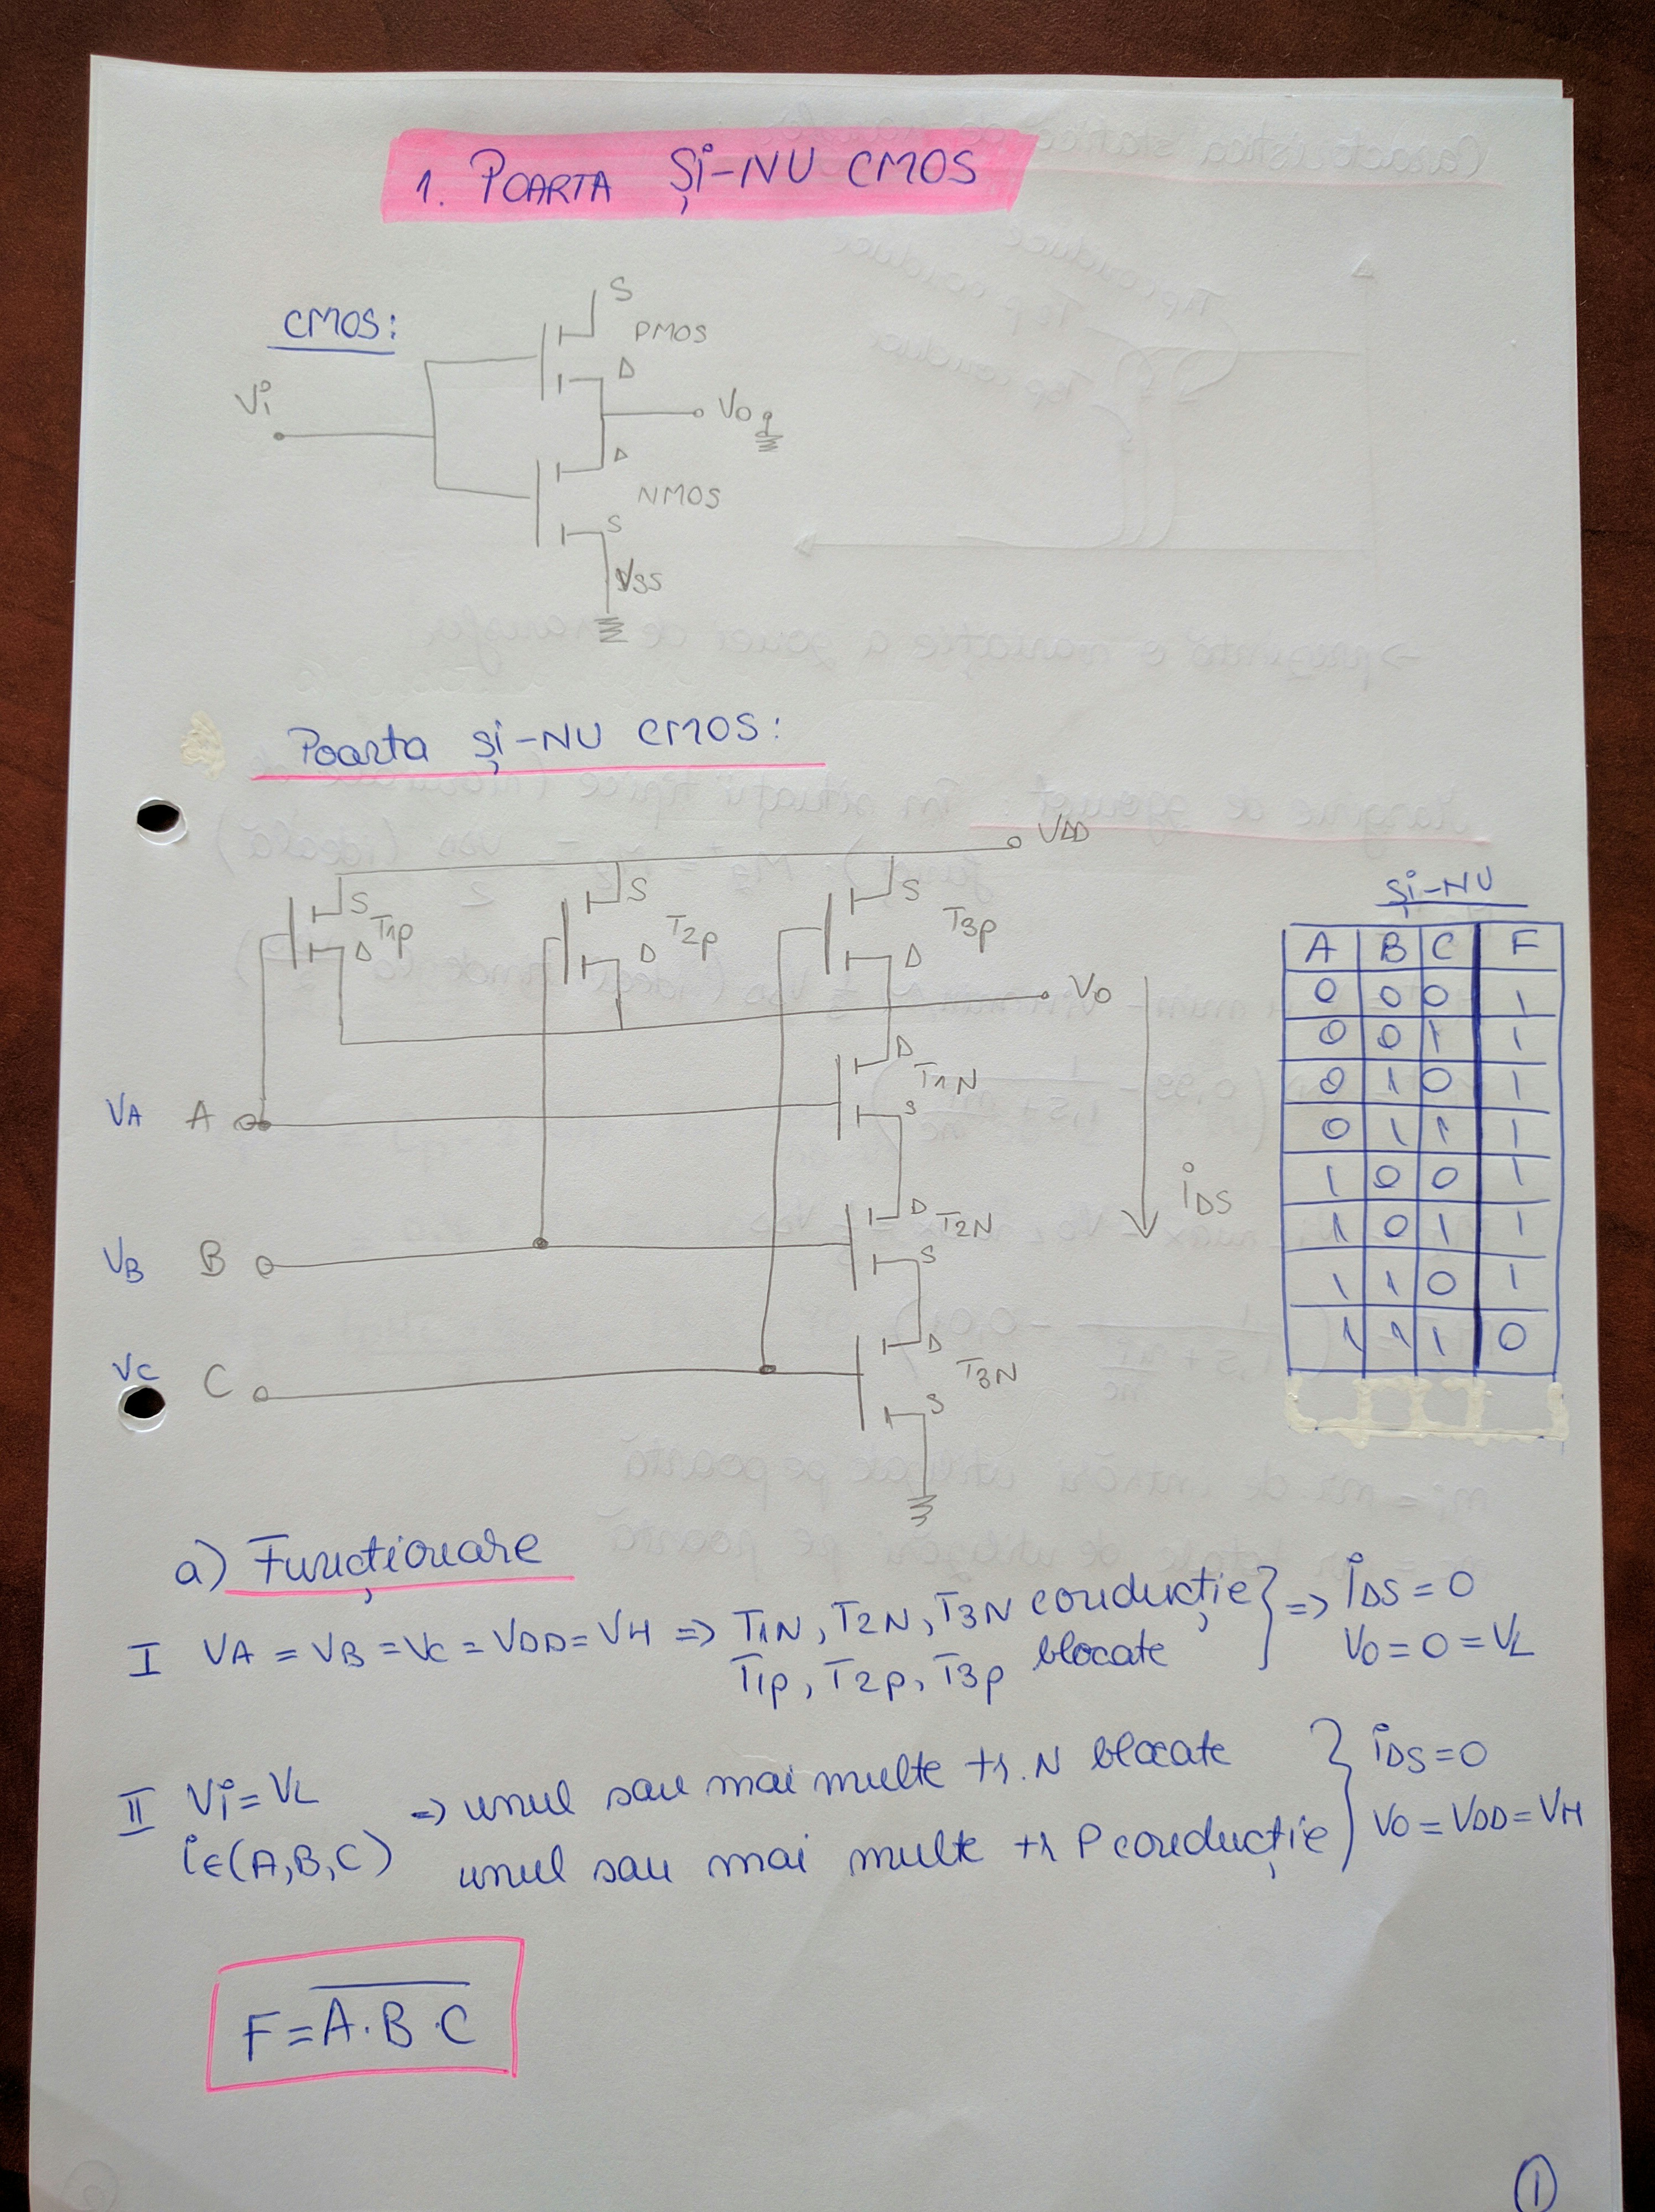 1. POARTA ȘI-NU CMOS
CMOS:
S
PMOS
D
Vi
Vo
D
NMOS
S
VSS
Poarta și-NU CMOS:
VDD
S T1p D
S T2p D
S T3p D
Vo
D T1N S
VA A
iDS
D T2N S
VB B
D T3N S
VC C
ȘI-NU
A B C F
0 0 0 1
0 0 1 1
0 1 0 1
0 1 1 1
1 0 0 1
1 0 1 1
1 1 0 1
1 1 1 0
a) Funcționare
I VA = VB = VC = VDD = VH => T1N, T2N, T3N conducție } => iDS = 0
T1p, T2p, T3p blocate Vo = 0 = VL
II Vi = VL => unul sau mai multe tr. N blocate } iDS = 0
i∈(A,B,C) unul sau mai multe tr P conducție Vo = VDD = VH
F = \overline{A·B·C}
1